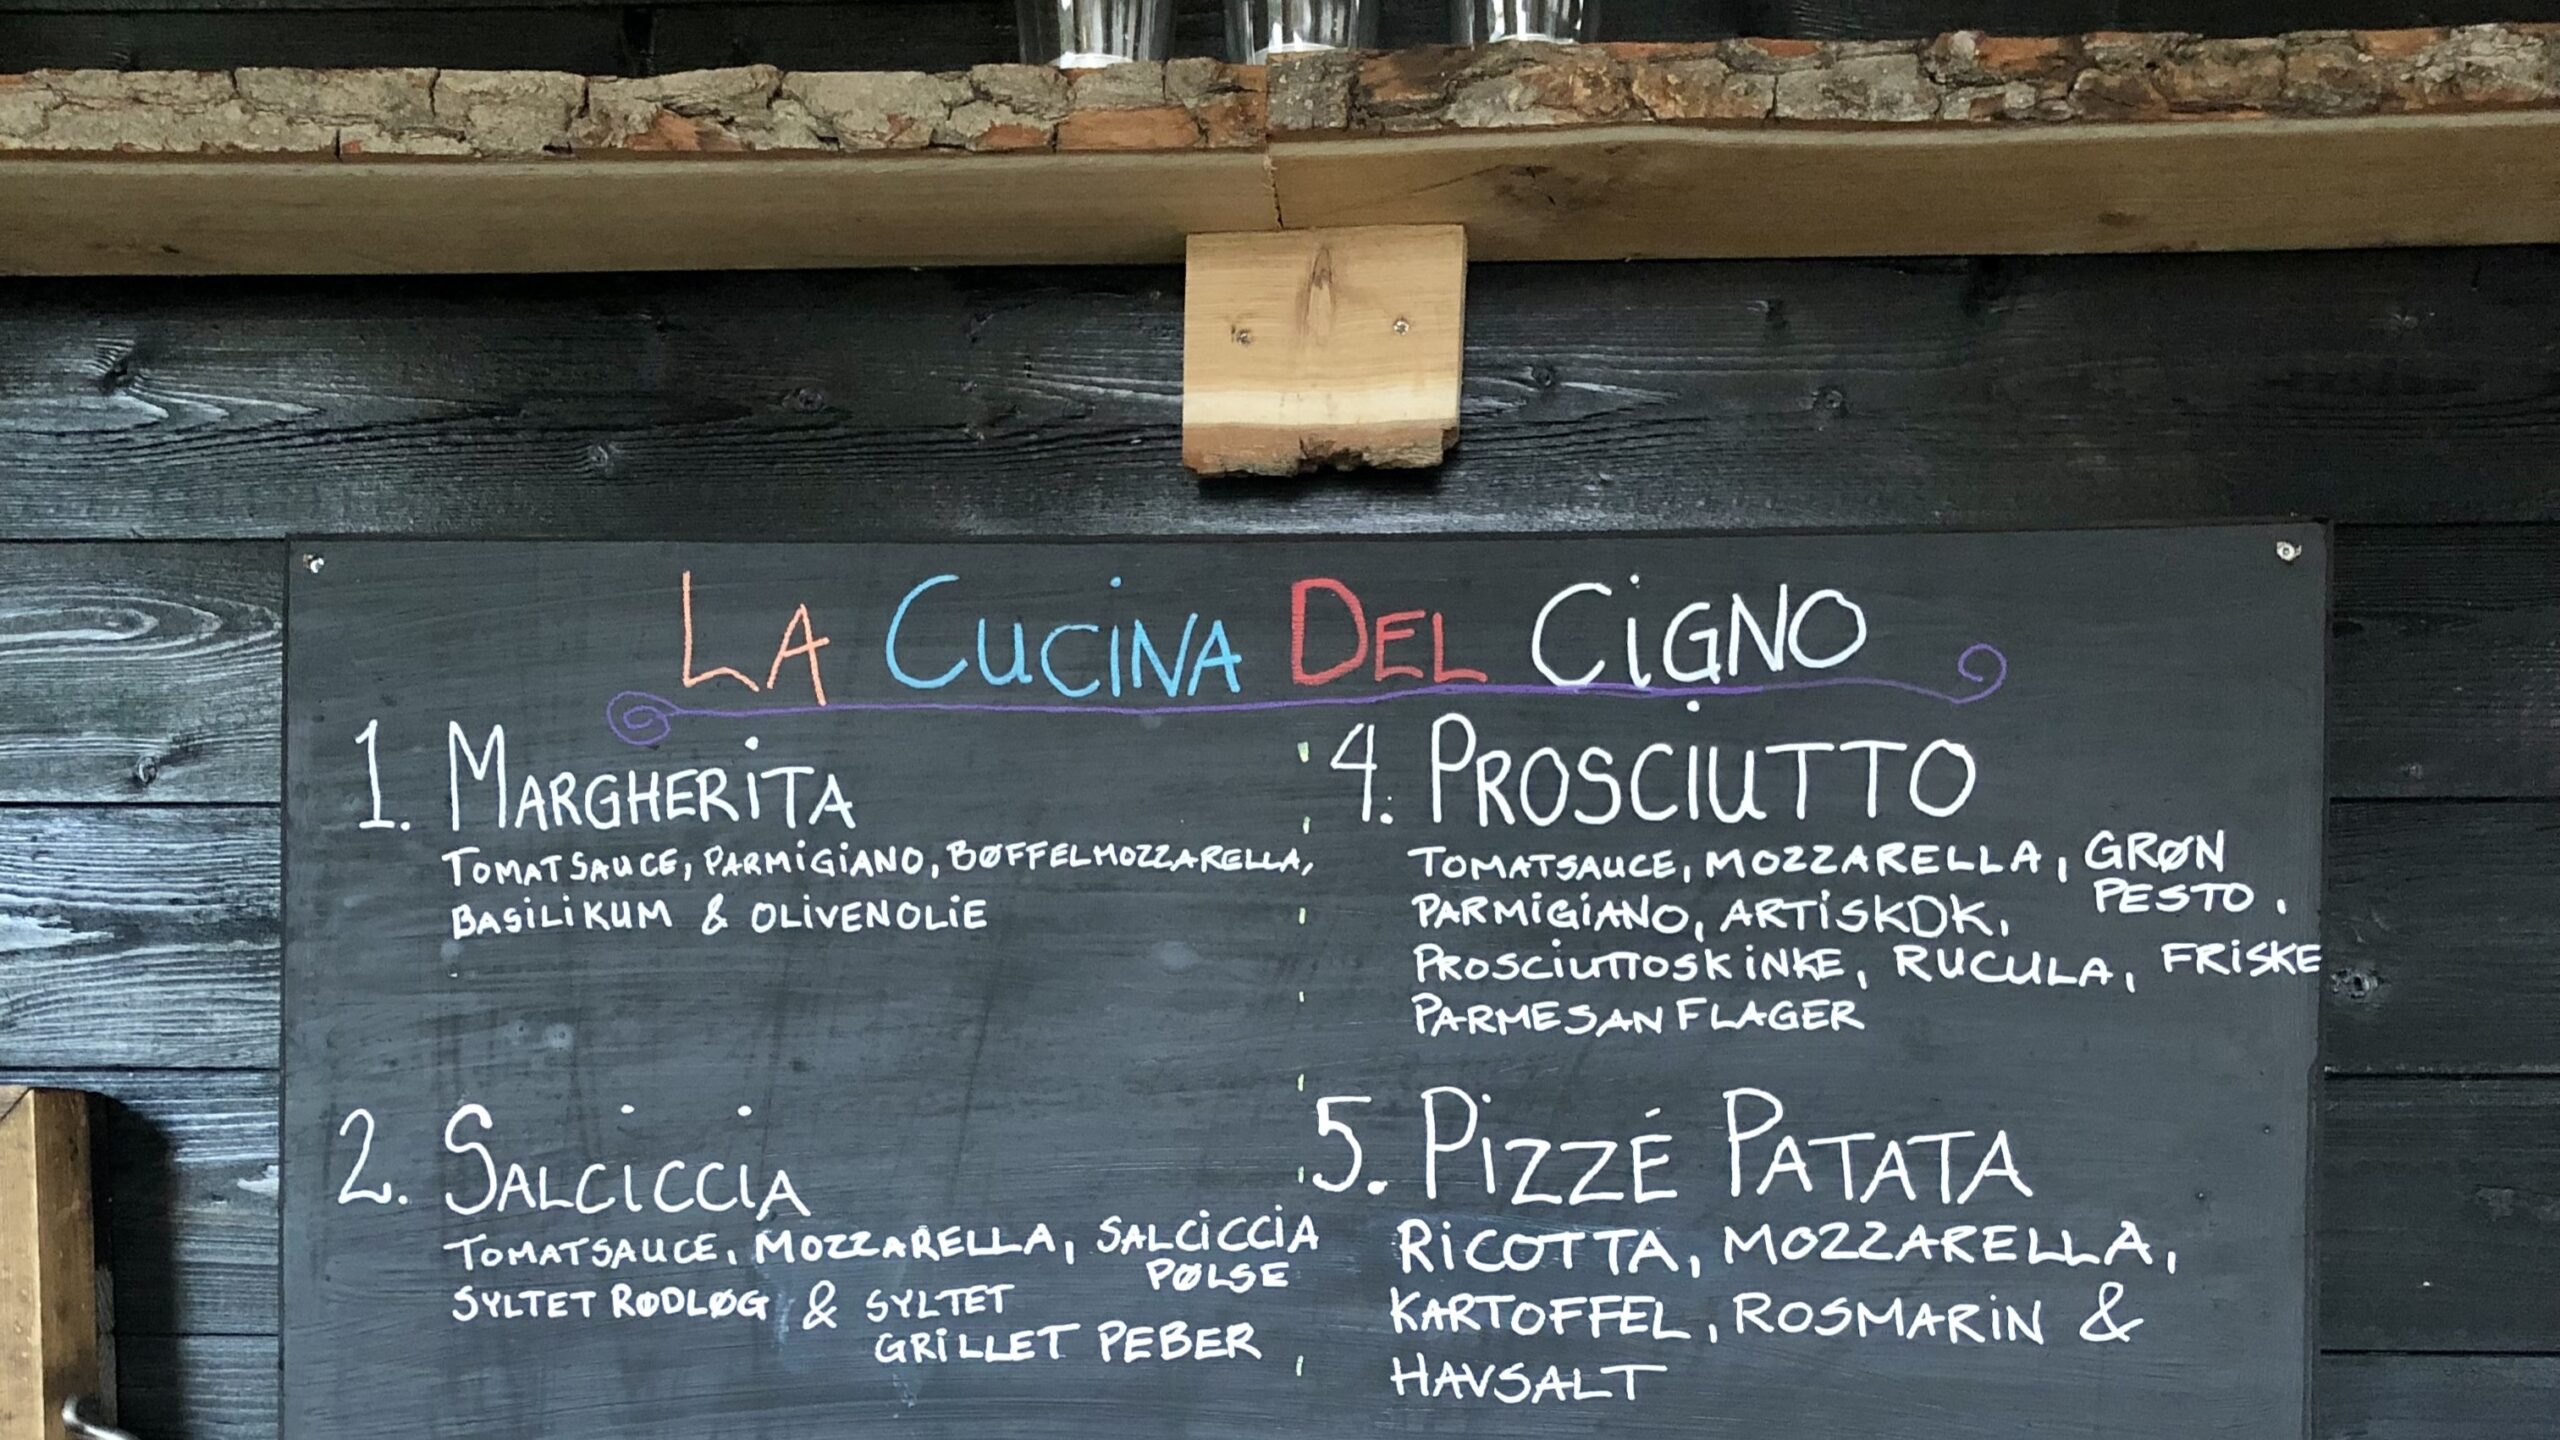 La Cucina Del Cigno
1. Margherita
Tomatsauce, Parmigiano, Bøffelmozzarella,
Basilikum & Olivenolie
2. Salciccia
Tomatsauce, Mozzarella, Salciccia
Pølse
Syltet Rødløg & Syltet
Grillet Peber
4. Prosciutto
Tomatsauce, Mozzarella, Grøn
Pesto,
Parmigiano, Artiskok,
Prosciuttoskinke, Rucula, Friske
Parmesanflager
5. Pizzé Patata
Ricotta, Mozzarella,
Kartoffel, Rosmarin &
Havsalt